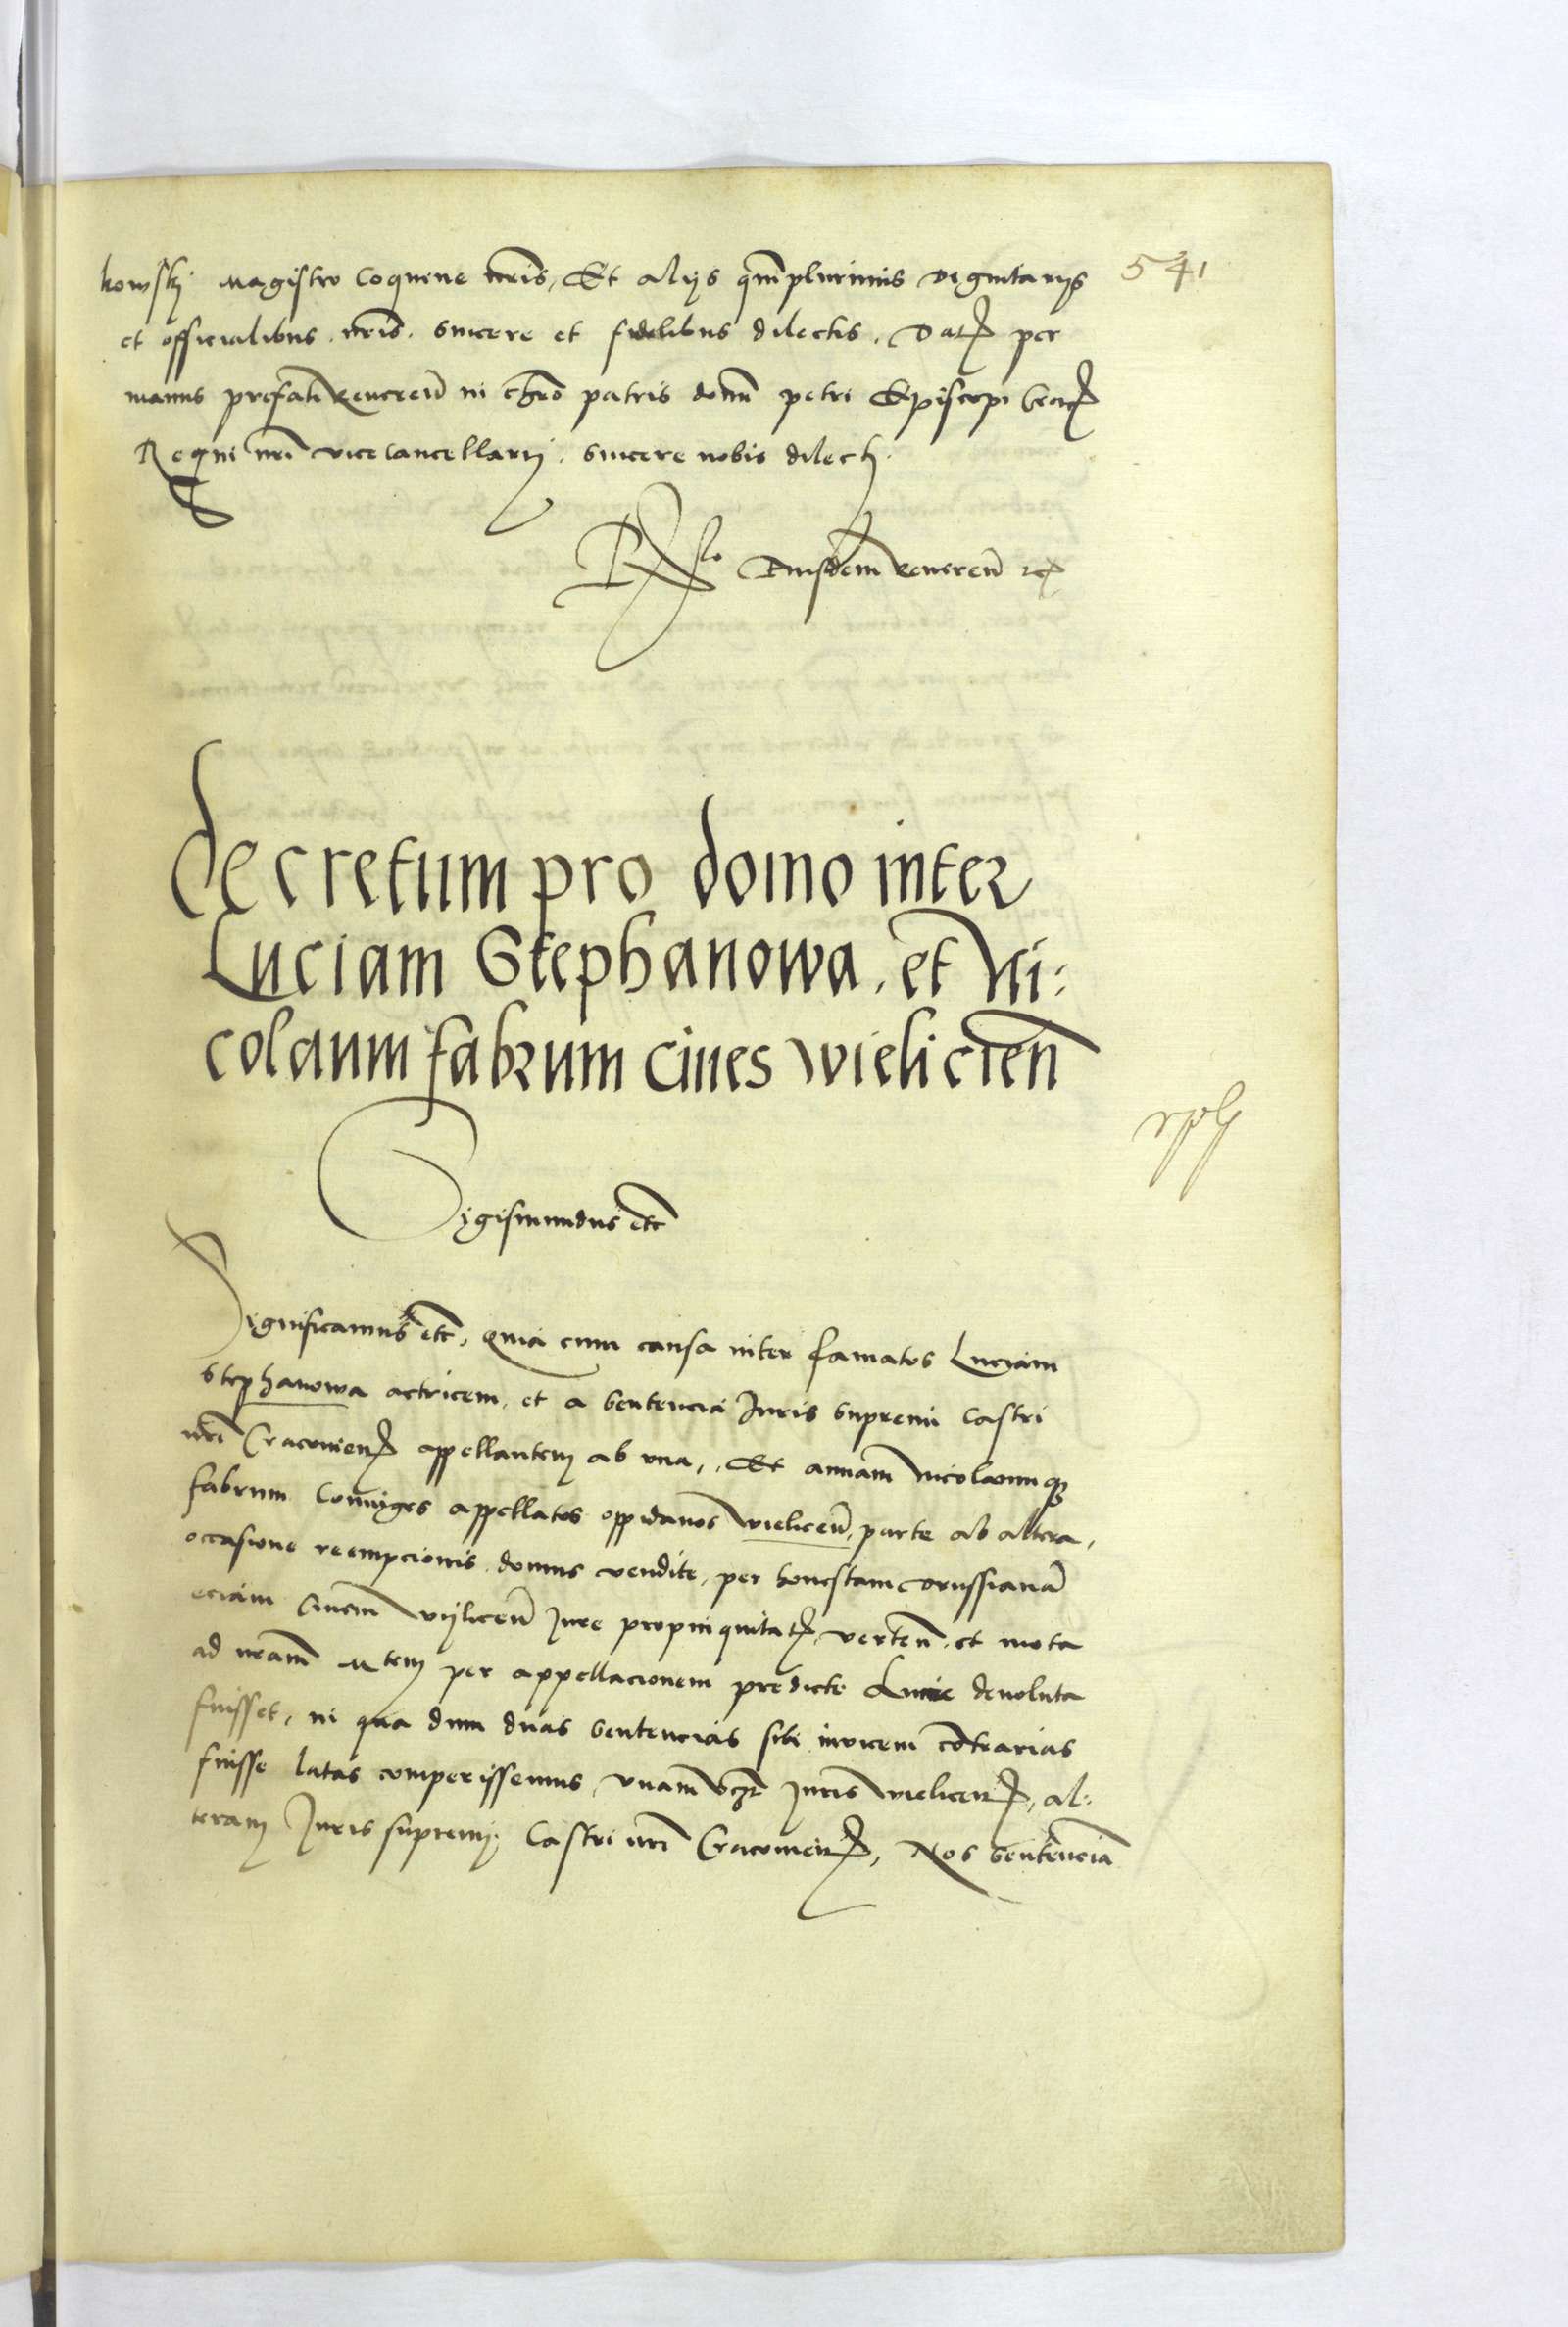 kowskj Magistro Coquine nr̃is, Et alijs qm̃plurimis dignitarijs
541
et officialibus nr̃is. sincere et fidelibus dilectis. Dat per
manus prefati Reueren̄ in chr̃o patris domi petri Episcopi
Regni nr̃i vicecancellarij. sincere nobis dilecti.
Rlo Eiusdem Reueren̄ etc
decretum pro domo inter
Luciam Stephanowa. et Ni:
colaum fabrum ciues wielicien̄
Sigismundus etc
Significamus etc, quia cum causa inter famatos Luciam
Stephanowa actricem, et a sentencia Juris supremi Castri
nr̃i Cracouien appellantem ab vna,, Et annam Nicolaumq
fabrum Coniuges appellatos oppidanos wielicen̄, parte ab altera,
occasione reempcionis domus vendite, per honestam
eciam Ciuem vijlicen̄ Jure propinquitat verten̄. et mota
ad nr̃am Mtem per appellacionem predicte Lucie deuoluta
fuisset, in qua dum duas sentencias sibi inuicem cõtrarias
fuisse latas comperissemus, vnam vz Juris wielicen, al:
teram Juris supremj Castri nr̃i Cracouien, Nos sentenciã